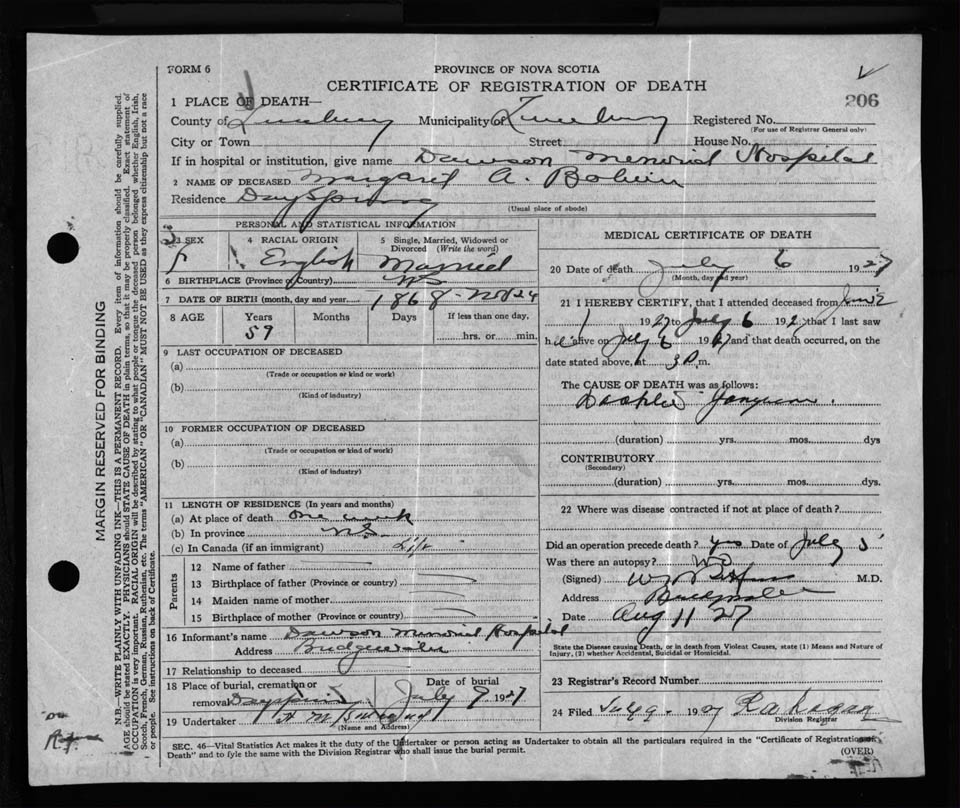 FORM 6
PROVINCE OF NOVA SCOTIA
CERTIFICATE OF REGISTRATION OF DEATH
206
1 PLACE OF DEATH—
County of Lunenburg Municipality of Lunenburg Registered No.
(For use of Registrar General only)
City or Town Street House No.
If in hospital or institution, give name Dawson Memorial Hospital
2 NAME OF DECEASED Margaret A.
Residence Dayspring
(Usual place of abode)
PERSONAL AND STATISTICAL INFORMATION
3 SEX
F
4 RACIAL ORIGIN
English
5 Single, Married, Widowed or Divorced (Write the word)
Married
6 BIRTHPLACE (Province or Country) NS
7 DATE OF BIRTH (month, day and year) 1868 - Nov 24
8 AGE
Years
59
Months
Days
If less than one day,
hrs. or min.
9 LAST OCCUPATION OF DECEASED
(a)
(Trade or occupation or kind or work)
(b)
(Kind of industry)
10 FORMER OCCUPATION OF DECEASED
(a)
(Trade or occupation or kind of work)
(b)
(Kind of industry)
11 LENGTH OF RESIDENCE (In years and months)
(a) At place of death one week
(b) In province N.S.
(c) In Canada (if an immigrant) Life
Parents
12 Name of father
13 Birthplace of father (Province or country)
14 Maiden name of mother
15 Birthplace of mother (Province or country)
16 Informant's name Dawson Memorial Hospital
Address Bridgewater
17 Relationship to deceased
18 Place of burial, cremation or removal Dayspring
Date of burial
July 9 1927
19 Undertaker
(Name and Address)
MEDICAL CERTIFICATE OF DEATH
20 Date of death July 6 1927
(Month, day and year)
21 I HEREBY CERTIFY, that I attended deceased from June
1927 to July 6 192 that I last saw
h alive on July 6 1927 and that death occurred, on
date stated above, at 3 P.m.
The CAUSE OF DEATH was as follows:
(duration) yrs. mos. dys
CONTRIBUTORY
(Secondary)
(duration) yrs. mos. dys.
22 Where was disease contracted if not at place of death?
Did an operation precede death? yes Date of July 5
Was there an autopsy? No
(Signed) M.D.
Address Bridgewater
Date Aug 11 27
State the Disease causing Death, or in death from Violent Causes, state (1) Means and Nature of
Injury, (2) whether Accidental, Suicidal or Homicidal.
23 Registrar's Record Number
24 Filed 19
Division Registrar
SEC. 46—Vital Statistics Act makes it the duty of the Undertaker or person acting as Undertaker to obtain all the particulars required in the "Certificate of Registration of
Death" and to file the same with the Division Registrar who shall issue the burial permit.
(OVER)
MARGIN RESERVED FOR BINDING
N.B.—WRITE PLAINLY WITH UNFADING INK—THIS IS A PERMANENT RECORD. Every item of information should be carefully supplied.
AGE should be stated EXACTLY. PHYSICIANS should STATE CAUSE OF DEATH in plain terms, so that it may be properly classified. Exact statement of
OCCUPATION is very important. RACIAL ORIGIN will be described by stating to what people or tongue the deceased person belonged whether English, Irish,
Scotch, French, German, Russian, Ruthenian, etc. The terms "AMERICAN" OR "CANADIAN" MUST NOT BE USED as they express citizenship but not a race
or people. See instructions on back of Certificate.